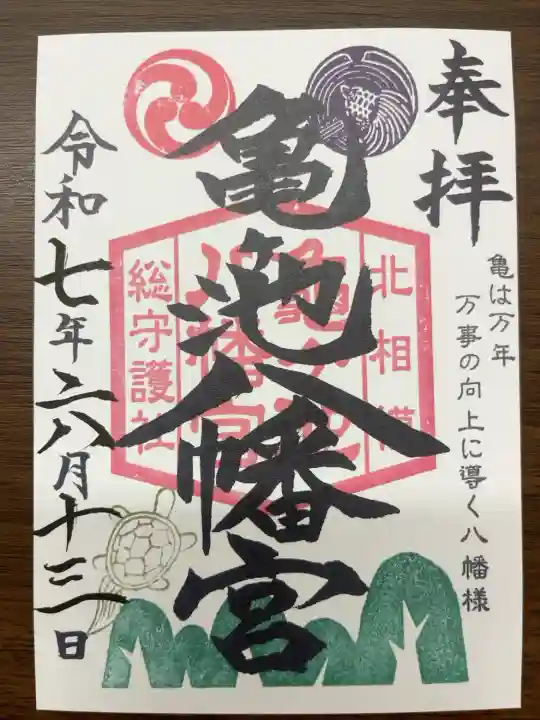 奉拝
亀は万年
万事の向上に導く八幡様
亀池八幡宮
北相模
亀ヶ池
八幡宮
総守護社
令和七年八月十三日